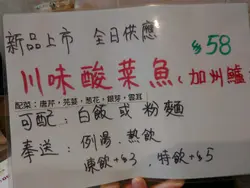 新品上市 全日供應 $58
川味酸菜魚(加州鱸
配菜：唐芹，芫荽，葱花，銀芽，雲耳
可配：白飯或粉麵
奉送：例湯、熱飲
凍飲+$3，特飲+$5